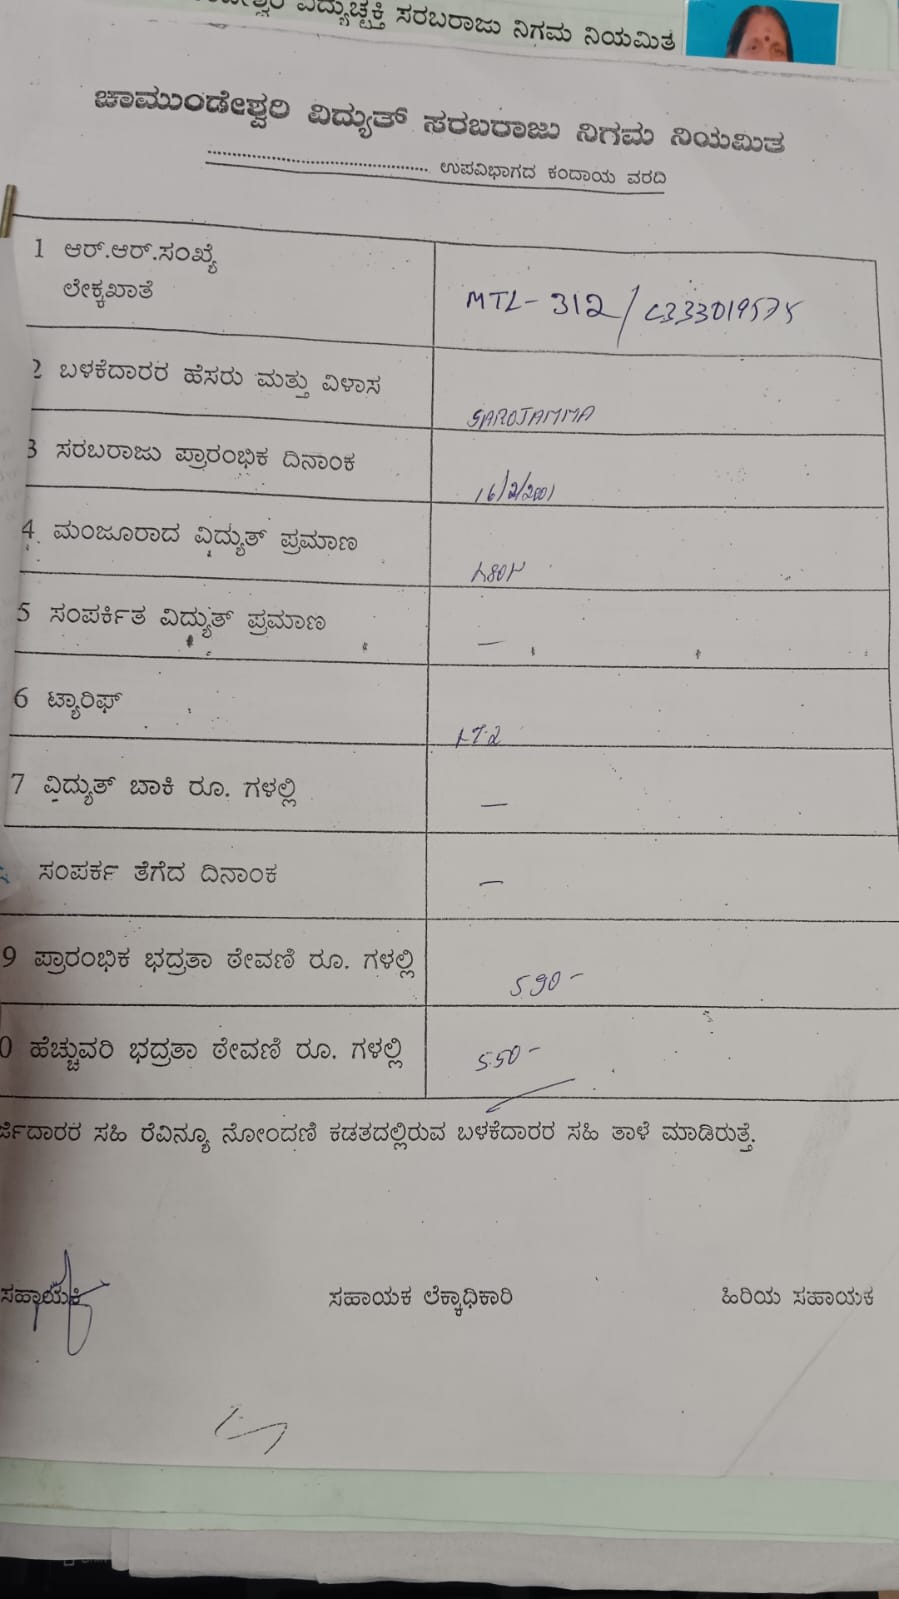 ವಿದ್ಯುಚ್ಛಕ್ತಿ ಸರಬರಾಜು ನಿಗಮ ನಿಯಮಿತ
ಚಾಮುಂಡೇಶ್ವರಿ ವಿದ್ಯುತ್ ಸರಬರಾಜು ನಿಗಮ ನಿಯಮಿತ
........................................ ಉಪವಿಭಾಗದ ಕಂದಾಯ ವರದಿ
1 ಆರ್.ಆರ್.ಸಂಖ್ಯೆ
ಲೇಕ್ಕಖಾತೆ
MTL-312/C333019575
2 ಬಳಕೆದಾರರ ಹೆಸರು ಮತ್ತು ವಿಳಾಸ
SAROJAMMA
3 ಸರಬರಾಜು ಪ್ರಾರಂಭಿಕ ದಿನಾಂಕ
16/2/2001
4 ಮಂಜೂರಾದ ವಿದ್ಯುತ್ ಪ್ರಮಾಣ
5 ಸಂಪರ್ಕಿತ ವಿದ್ಯುತ್ ಪ್ರಮಾಣ
—
6 ಟ್ಯಾರಿಫ್
LT-2
7 ವಿದ್ಯುತ್ ಬಾಕಿ ರೂ. ಗಳಲ್ಲಿ
—
ಸಂಪರ್ಕ ತೆಗೆದ ದಿನಾಂಕ
—
9 ಪ್ರಾರಂಭಿಕ ಭದ್ರತಾ ಠೇವಣಿ ರೂ. ಗಳಲ್ಲಿ
590-
0 ಹೆಚ್ಚುವರಿ ಭದ್ರತಾ ಠೇವಣಿ ರೂ. ಗಳಲ್ಲಿ
550-
ರ್ಜಿದಾರರ ಸಹಿ ರೆವಿನ್ಯೂ ನೋಂದಣಿ ಕಡತದಲ್ಲಿರುವ ಬಳಕೆದಾರರ ಸಹಿ ತಾಳೆ ಮಾಡಿರುತ್ತೆ.
ಸಹಾಯಕಿ ಸಹಾಯಕ ಲೆಕ್ಕಾಧಿಕಾರಿ ಹಿರಿಯ ಸಹಾಯಕ